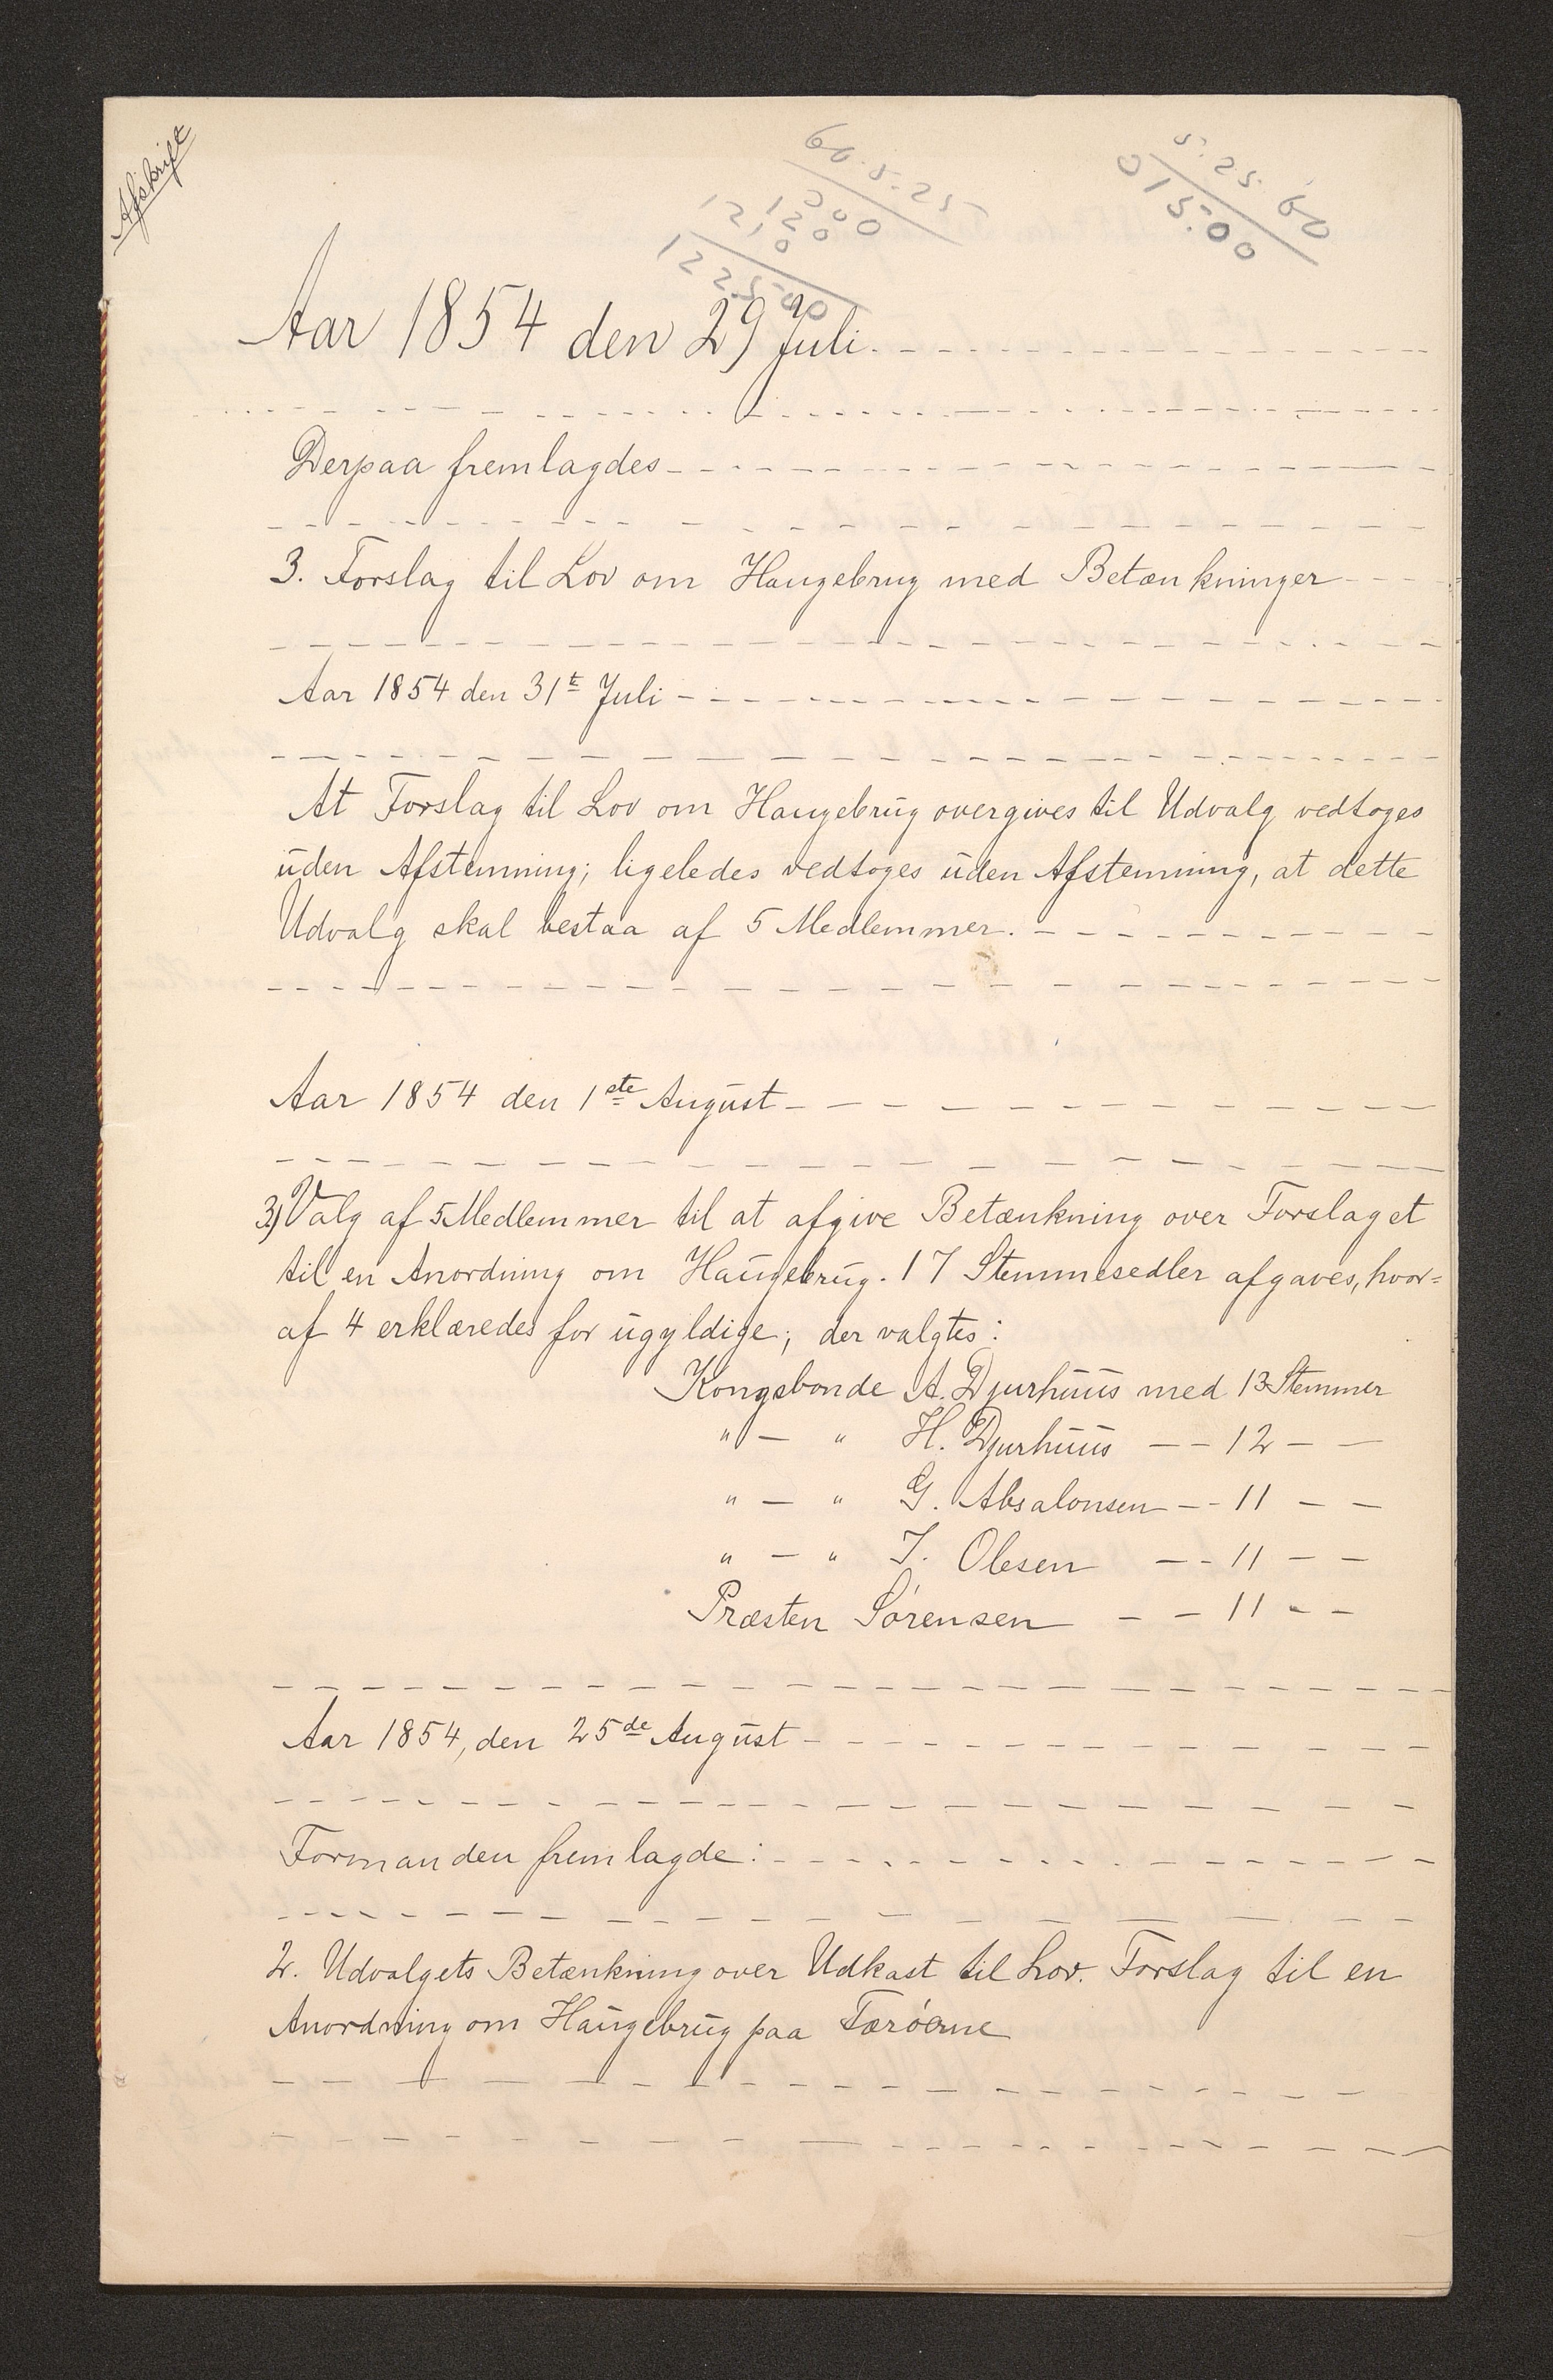 Afskrift
60.5-25
300
120
12,0
1225-00
5.25 60
015.00
Aar 1854 den 29 Juli.
Derpaa fremlagdes
3. Forslag til Lov om Haugebrug med Betænkninger
Aar 1854 den 31t Juli
At Forslag til Lov om Haugebrug overgives til Udvalg vedtoges
uden Afstemning; ligeledes vedtoges uden Afstemning, at dette
Udvalg skal bestaa af 5 Medlemmer.
Aar 1854 den 1ste August
3) Valg af 5 Medlemmer til at afgive Betænkning over Forslaget
til en Anordning om Haugebrug. 17 Stemmesedler afgaves, hvor=
af 4 erklæredes for ugyldige; der valgtes:
Kongsbonde A. Djurhuus med 13 Stemmer
" — " H. Djurhuus — — 12 — —
" — " G. Absalonsen — — 11 — —
" — " J. Olesen — — 11 — —
Præsten Sørensen — — 11 — —
Aar 1854, den 25de August
Formanden fremlagde:
2. Udvalgets Betænkning over Udkast til Lov. Forslag til en
Anordning om Haugebrug paa Færøerne